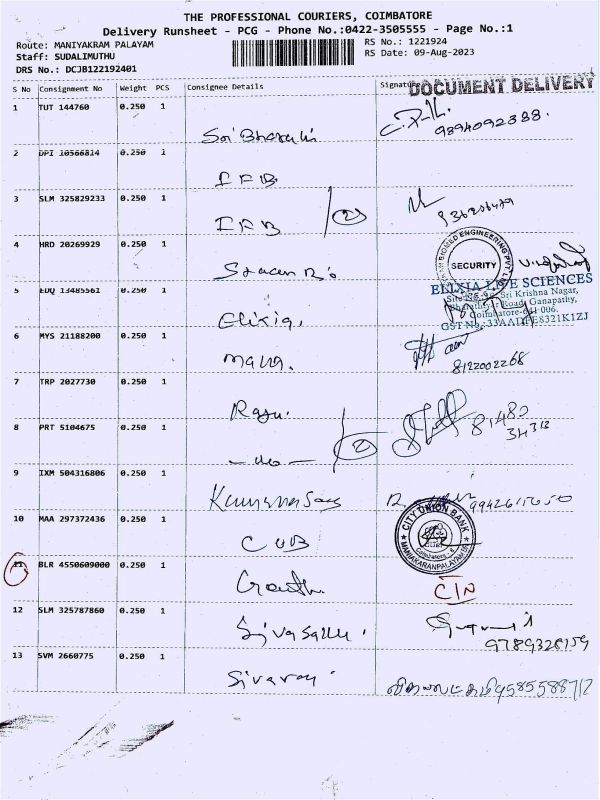 THE PROFESSIONAL COURIERS, COIMBATORE
Delivery Runsheet - PCG - Phone No.:0422-3505555 - Page No.:1
Route: MANIYAKRAM PALAYAM
RS No.: 1221924
Staff: SUDALIMUTHU
RS Date: 09-Aug-2023
DRS No.: DCJB122192401
S No Consignment No Weight PCS Consignee Details
DOCUMENT DELIVERY
1 TUT 144760 0.250 1
9894092388.
2 DPI 10566814 0.250 1 IFB
3 SLM 325829233 0.250 1 IFB (2)
4 HRD 20269929 0.250 1
SECURITY
ELIXIA LIFE SCIENCES
Sri Krishna Nagar,
Bharathiyar Road, Ganapathy,
Coimbatore-641 006.
5 EDQ 13485561 0.250 1 Elixia,
6 MYS 21188200 0.250 1
8122002268
7 TRP 2027730 0.250 1 Raju.
8 PRT 5104675 0.250 1 -do- (2) 81480
9 IXM 504316806 0.250 1
10 MAA 297372436 0.250 1 CUB
CITY UNION BANK
11 BLR 4550609000 0.250 1
CIN
12 SLM 325787860 0.250 1
9789328159
13 SVM 2660775 0.250 1 Sivaraj.
9585588712